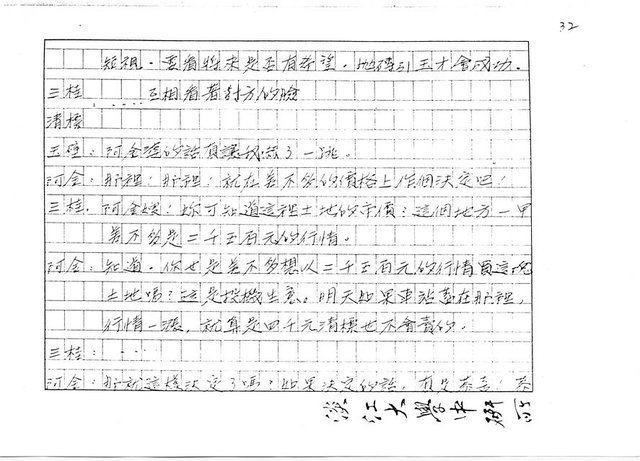 32
短視。要看將來是否有希望。拋磚引玉才會成功。
三桂……互相看著對方的臉
清標
玉壁：阿金嬸的話真讓我嚇了一跳。
阿金：那裡！那裡！就在差不多的價格上作個決定吧！
三桂：阿金嫂！妳可知道這裡土地的市價？這個地方一甲
差不多是二千五百元的行情。
阿金：知道。你也是差不多想以二千五百元的行情買這塊
土地嗎？這是投機生意。明天如果車站蓋在那裡，
行情一漲，就算是四千元清標也不會賣的。
三桂：……
阿金：那就這樣決定了嗎？如果決定的話，真是恭喜！恭
淡江大學中研所